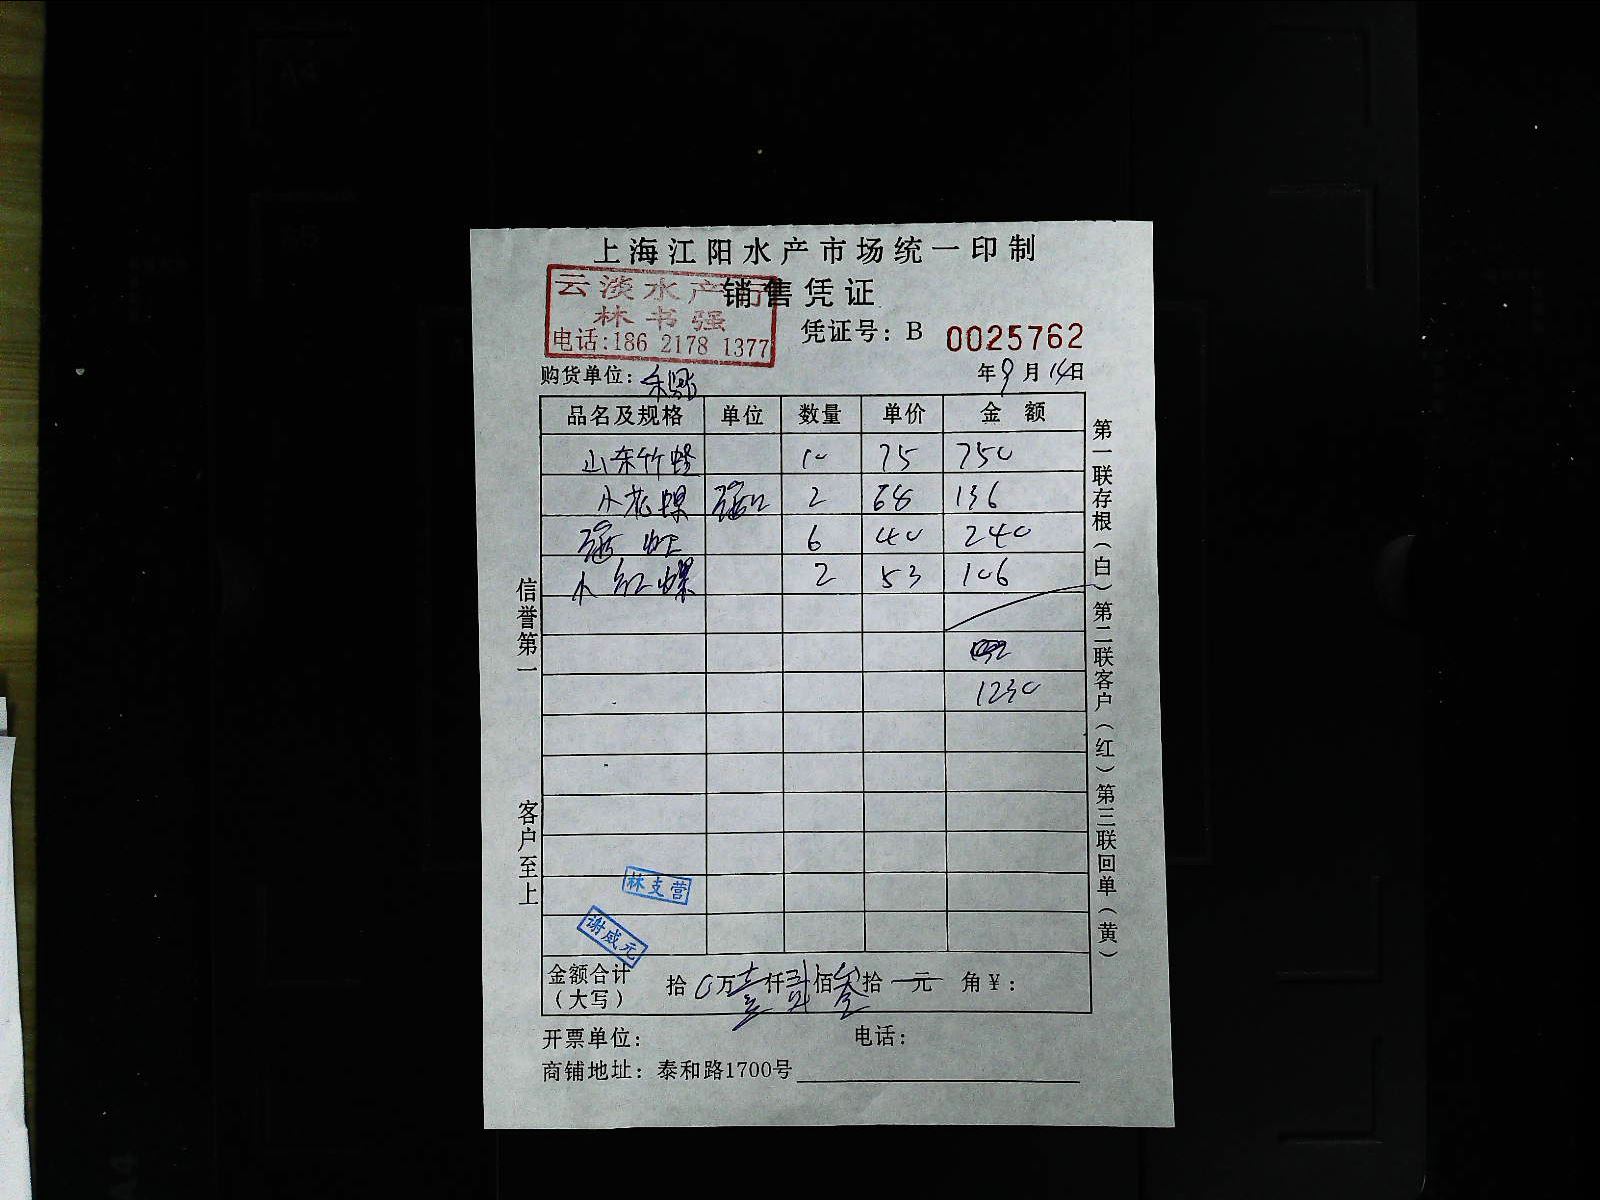 上海江阳水产市场统一印制
销售凭证
云淡水产行
林书强
电话:186 2178 1377
凭证号: B 0025762
购货单位:
年9月14日
品名及规格 单位 数量 单价 金 额
山东竹蛏 10 75 750
小花螺 2 68 136
6 40 240
小红螺 2 53 106
1230
林支营
谢威元
金额合计(大写) 拾0万壹仟贰佰叁拾一元 角¥:
开票单位: 电话:
商铺地址: 泰和路1700号
信誉第一
客户至上
第一联存根(白)第二联客户(红)第三联回单(黄)